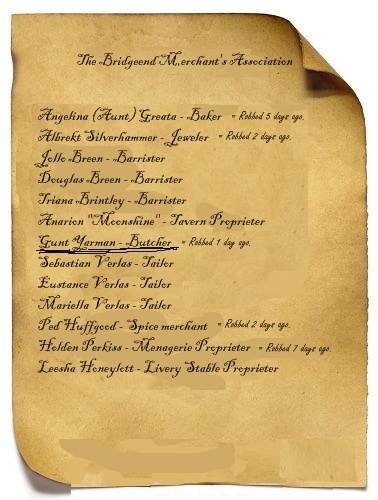 The Bridgeend Merchant's Association
Angelina (Aunt) Greata - Baker = Robbed 5 days ago.
Albrekt Silverhammer - Jeweler = Robbed 2 days ago.
Jollo Breen - Barrister
Douglas Breen - Barrister
Triana Brintley - Barrister
Anarion "Moonshine" - Tavern Proprietor
Gunt Yarman - Butcher = Robbed 1 day ago.
Sebastian Verlas - Tailor
Eustance Verlas - Tailor
Mariella Verlas - Tailor
Ped Huffgood - Spice merchant = Robbed 2 days ago.
Holden Perkiss - Menagerie Proprietor = Robbed 7 days ago.
Leesha Honeylott - Livery Stable Proprietor